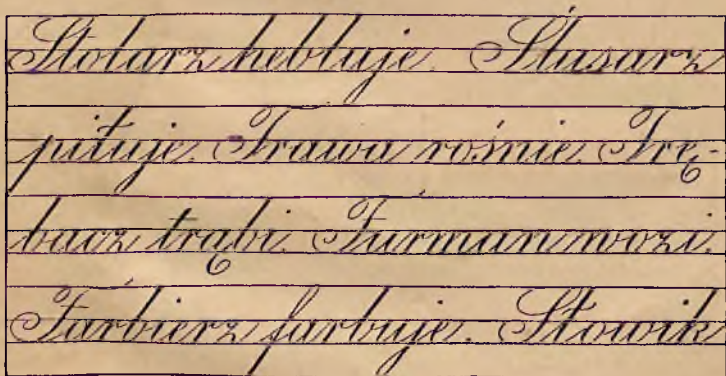 Stolarz hebluje. Ślusarz
piłuje. Trawa rośnie. Trę-
bacz trąbi. Furman wozi.
Farbierz farbuje. Słowik